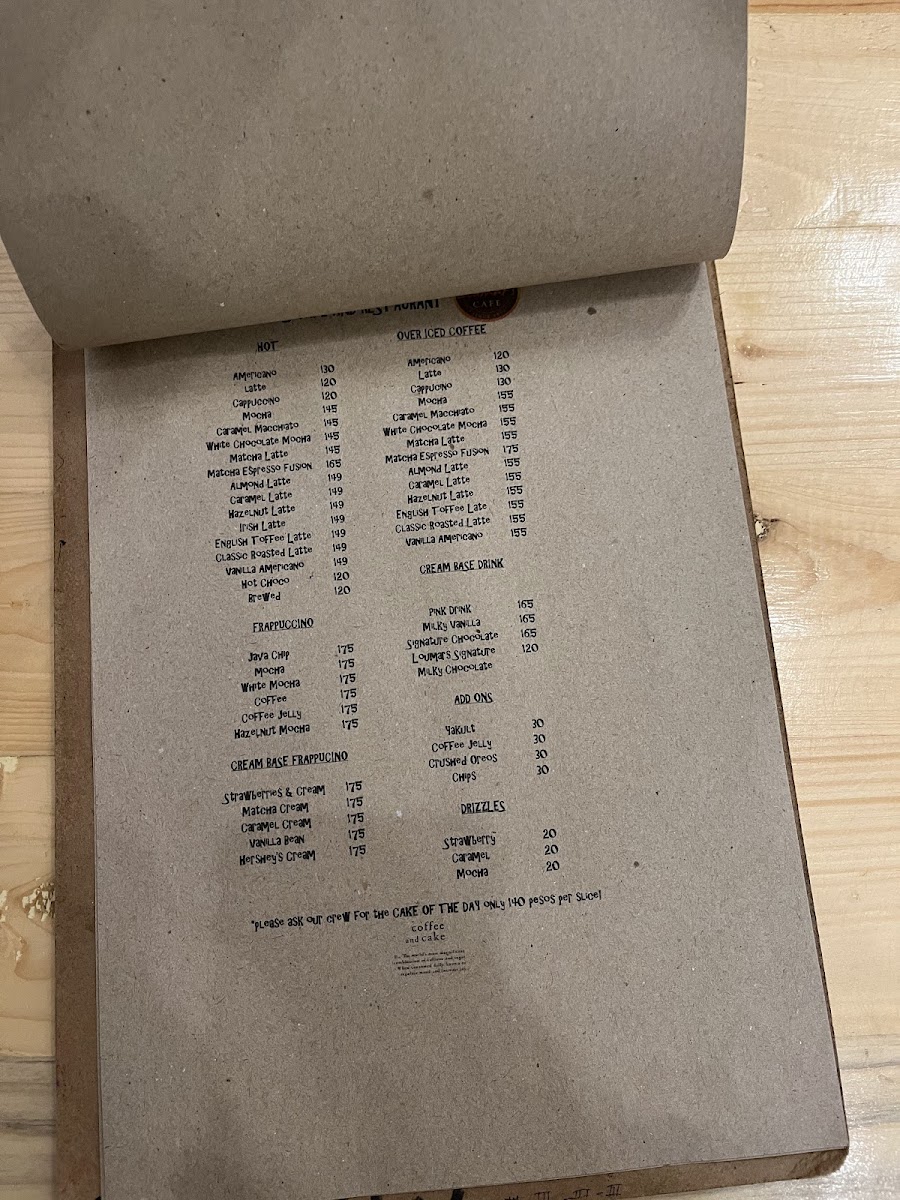 RESTAURANT
CAFE
HOT
Americano 130
Latte 120
Cappuccino 120
Mocha 145
Caramel Macchiato 145
White Chocolate Mocha 145
Matcha Latte 145
Matcha Espresso Fusion 165
Almond Latte 149
Caramel Latte 149
Hazelnut Latte 149
Irish Latte 149
English Toffee Latte 149
Classic Roasted Latte 149
Vanilla Americano 149
Hot Choco 120
Brewed 120
FRAPPUCCINO
Java Chip 175
Mocha 175
White Mocha 175
Coffee 175
Coffee Jelly 175
Hazelnut Mocha 175
CREAM BASE FRAPPUCINO
Strawberries & Cream 175
Matcha Cream 175
Caramel Cream 175
Vanilla Bean 175
Hershey's Cream 175
OVER ICED COFFEE
Americano 120
Latte 130
Cappucino 130
Mocha 155
Caramel Macchiato 155
White Chocolate Mocha 155
Matcha Latte 155
Matcha Espresso Fusion 175
Almond Latte 155
Caramel Latte 155
Hazelnut Latte 155
English Toffee Late 155
Classic Roasted Latte 155
Vanilla Americano 155
CREAM BASE DRINK
Pink Drink 165
Milky Vanilla 165
Signature Chocolate 165
Loumar's Signature 120
Milky Chocolate
ADD ONS
Yakult 30
Coffee Jelly 30
Crushed Oreos 30
Chips 30
DRIZZLES
Strawberry 20
Caramel 20
Mocha 20
*Please ask our crew for the CAKE OF THE DAY only 140 pesos per slice!
coffee
and cake